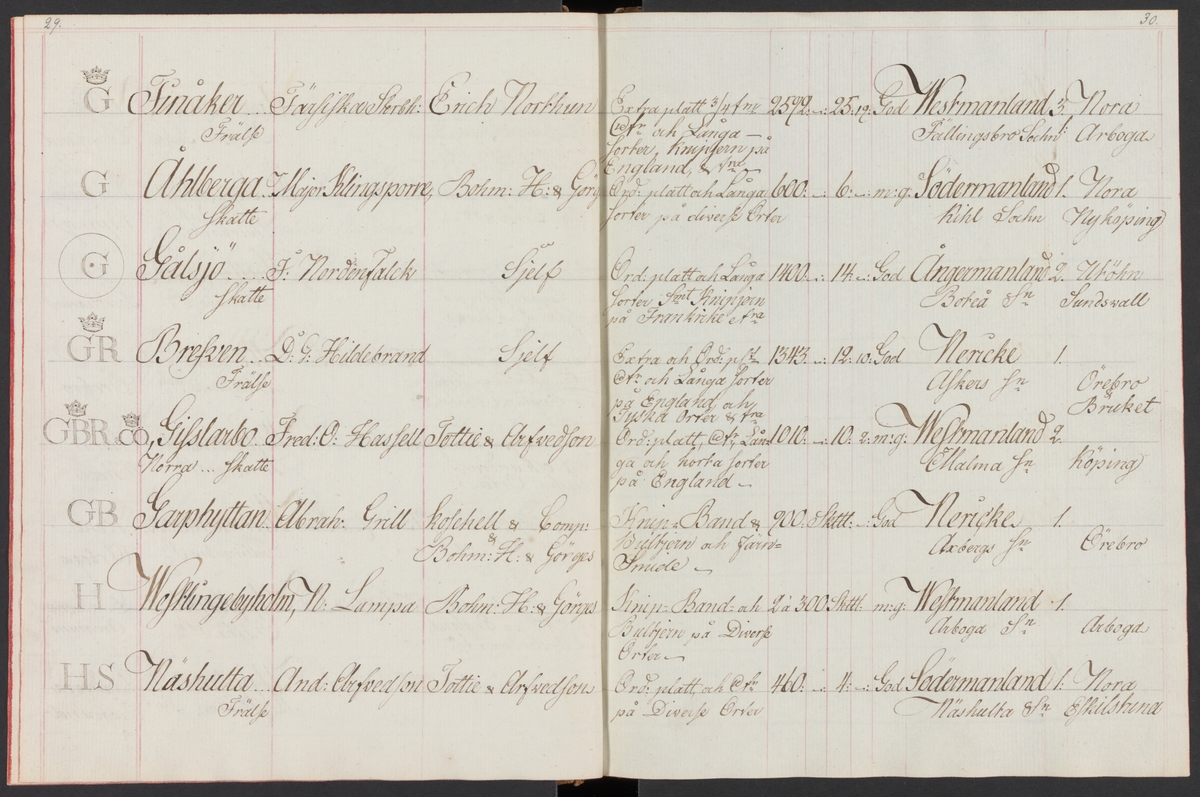 29.
30.
G Finåker ... Färsiska Sterbh: Erich Northun Extra platt 3/4 tm 2592. 25. 19. God Westmanland 3. Nora
Frälse Ctn och Långa — Fällingsbro Sochn 1. Arboga
sorter, Knipjern på
England, &
G Åhlberga. Major Klingsporre, Bohm: H: & Görg Ord: platt och Långa 600. 6. m:g: Södermanland 1. Nora
Skatte sorter på diverse Orter Kihl Sochn Nyköping
G Gålsjö ..... F: Nordenfalck Sjelf Ord: platt och Långa 1400. 14. God Ångermanland 2. Utöhn
Skatte sorter Smt Knipjern Boteå Sn Sundsvall
på Frankrike etra
GR Brefven ... D: G: Hildebrand Sjelf Extra och Ord: plt 1343. 12. 10. God Nericke 1.
Frälse Ctn och Långa sorter Askers Sn Örebro
på England och & Bruket
Tyska Orter & tra
GBR.CO, Gisslarbo. Fred: O: Hassell Tottie & Arfvedson Ord: platt, Ctn, Lån- 1010. 10. 2. m:g: Westmanland 2.
Norra ... Skatte ga och korta sorter Malma Sn Köping
på England —
GB Garphyttan. Abrah: Grill Koschell & Comp: Knip- Band & 900. Skttl: God Nericke 1.
& Bohm: H: & Görges Bultjern och Järn- Axbergs Sn Örebro
Smide —
H Westlingebyholm, N: Lampa Bohm: H: & Görges Knip- Band- och 2 à 300. Skttl: m:g: Westmanland 1.
Bultjern på Diverse Arboga Sn Arboga
Orter —
HS Näshulta ... And: Arfvedson Tottie & Arfvedson Ord: platt, och Ctn 460. 4. God Södermanland 1. Nora
Frälse på Diverse Orter Näshulta Sn Eskilstuna